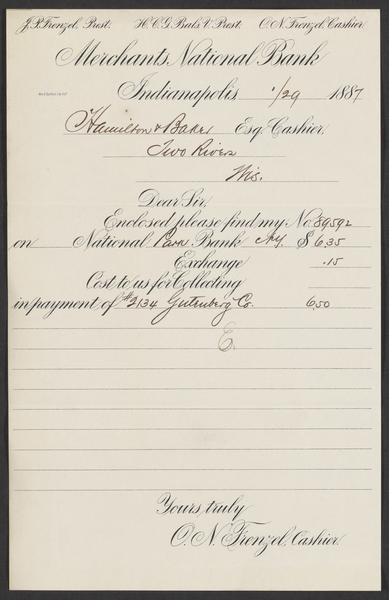 J. P. Frenzel, Prest. H. C. G. Bals, V. Prest. O. N. Frenzel, Cashier.
Merchants National Bank
Indianapolis, 1/29 1887
Hamilton & Baker Esq. Cashier.
Two Rivers
Wis.
Dear Sir,
Enclosed please find my No. 89592
on National Park Bank NY. $ 6.35
Exchange .15
Cost to us for Collecting
in payment of #2134 Gutenberg Co. 6.50
E.
Yours, truly
O. N. Frenzel, Cashier.